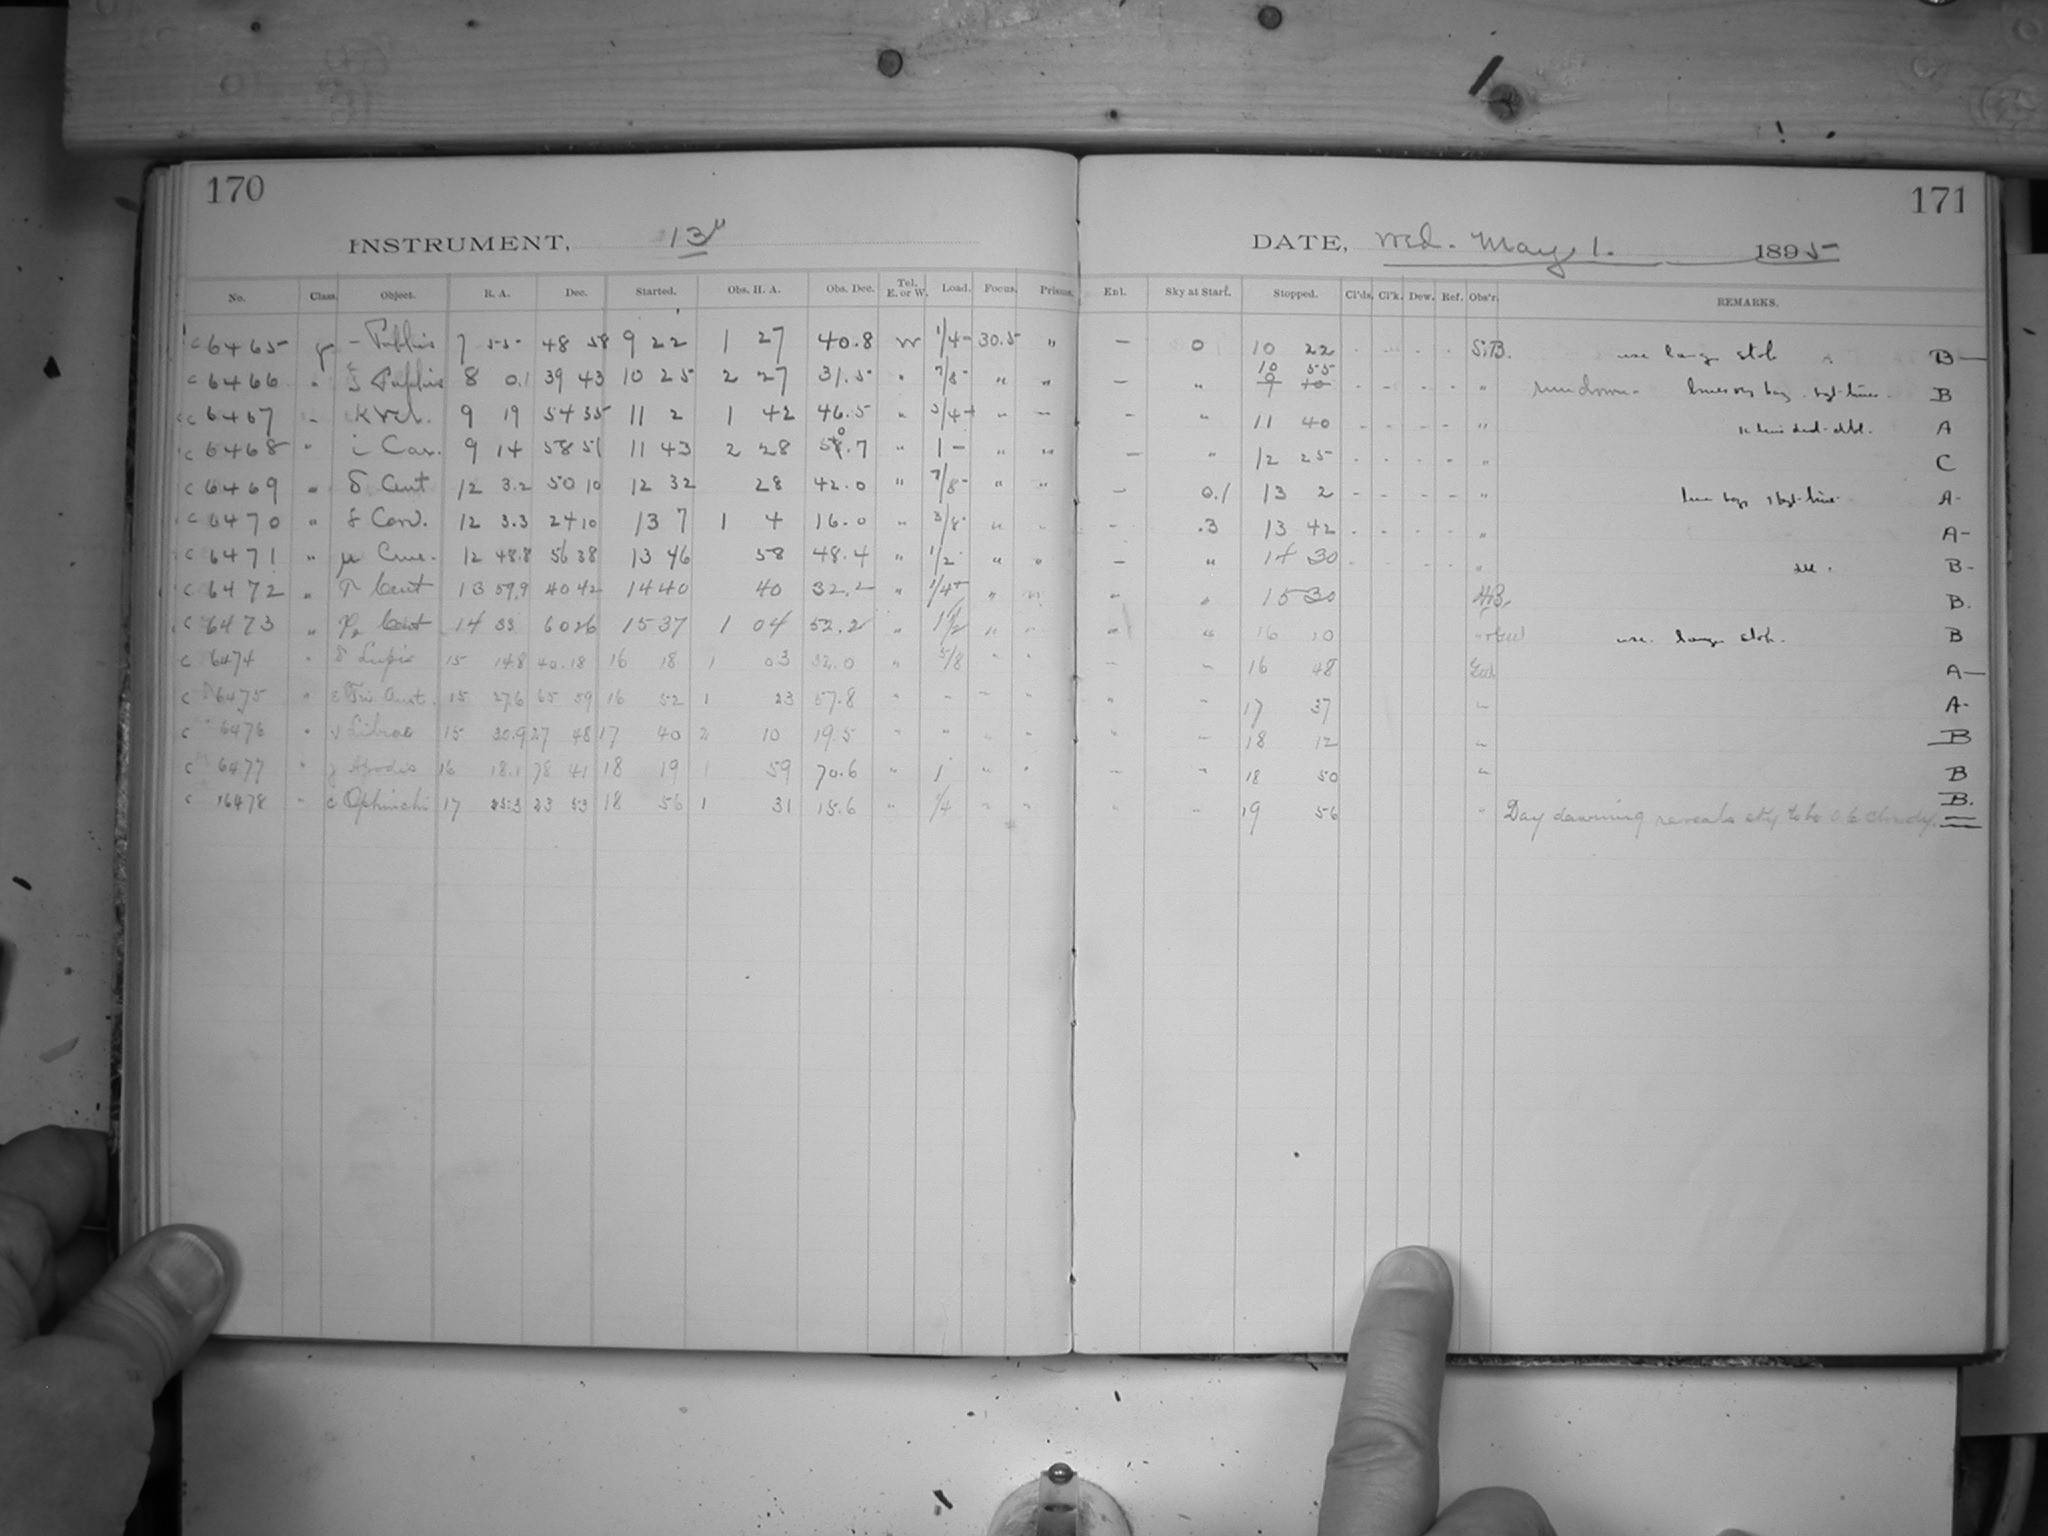 170
INSTRUMENT, 13"
No. Class. Object. R. A. Dec. Started. Obs. H. A. Obs. Dec. Tel. E. or W. Load. Focus. Prisms.
c 6465 g – Puppis 7 55 48 58 9 22 1 27 40.8 W 1/4- 30.5 "
c 6466 " ξ Puppis 8 0.1 39 43 10 25 2 27 31.5 " 7/8- " "
c 6467 " k Vel. 9 19 54 35 11 2 1 42 46.5 " 3/4+ " "
c 6468 " i Car. 9 14 58 51 11 43 2 28 " 1 – " "
c 6469 " δ Cent 12 3.2 50 10 12 32 28 42.0 " 7/8- " "
c 6470 " Corv. 12 3.3 24 10 13 7 1 4 16.0 " 3/8- " "
c 6471 " μ Cruc. 12 48.8 56 38 13 46 58 48.4 " 1/2 " "
c 6472 " Cent 13 57.9 40 42 14 40 40 32.2 " 1/4+ " "
c 6473 " Cent 14 33 60 26 15 37 1 04 52.2 " 1 1/2 " "
c 6474 " δ Lupi 15 14.8 40.18 16 18 1 03 32.0 " 5/8 " "
c 6475 " ε Tri Aust. 15 27.6 65 59 16 52 1 23 57.8 " " " "
c 6476 " υ Librae 15 30.9 27 48 17 40 2 10 19.5 " " " "
c 6477 " γ Apodis 16 18.1 78 41 18 19 1 59 70.6 " 1 " "
c 6478 " c Ophiuchi 17 25.3 23 53 18 56 1 31 15.6 " 1/4 " "
171
DATE, Wed. May 1. 1895
Enl. Sky at Start. Stopped. Cl'ds. Cl'k. Dew. Ref. Obs'r. REMARKS.
– 0 10 22 S.B. use large stob B–
– " 10 55 " run down B
– " 11 40 " A
– " 12 25 " C
– 0.1 13 2 " A-
– .3 13 42 " A-
– " 14 30 " B-
" " 15 30 B.
" " 16 10 use large stob. B
" " 16 48 A–
" " 17 37 " A-
" " 18 12 " B
" " 18 50 " B
" " 19 56 " Day dawning reveals sky to be 0.6 cloudy. B.